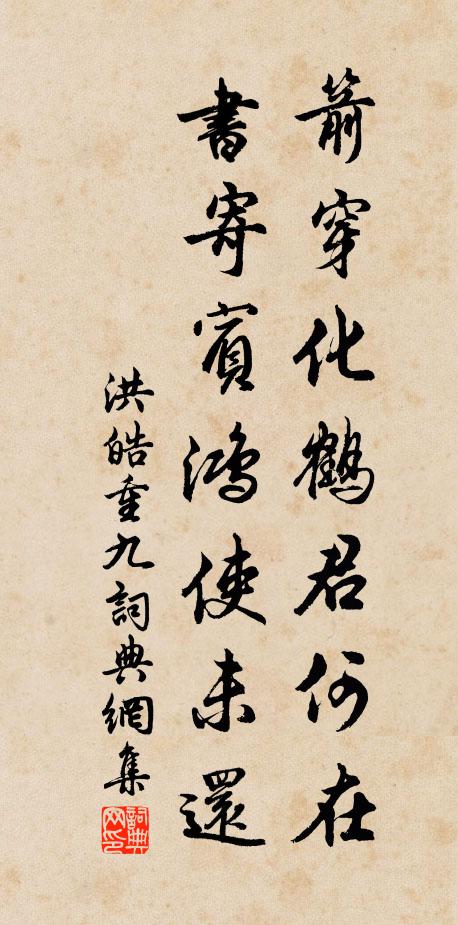 箭穿化鶴君何在
書寄賓鴻使未還
洪皓重九詞典網集
詞典网印